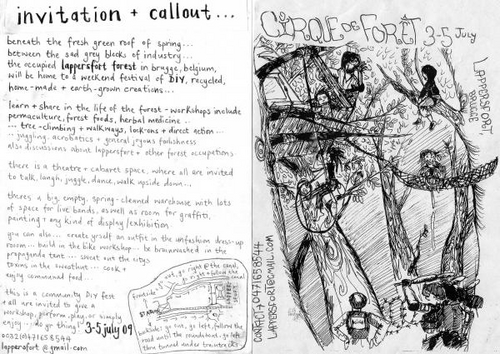 invitation + callout...
beneath the fresh green roof of spring...
between the sad grey blocks of industry...
the occupied lappersfort forest in brugge, belgium,
will be home to a weekend festival of DIY, recycled,
home-made + earth-grown creations...
learn + share in the life of the forest - workshops include
permaculture, forest foods, herbal medicine ..
... tree-climbing + walkways, lock-ons + direct action ...
juggling, acrobatics + general joyous foolishness.
also discussions about lappersfort + other forest occupations.
there is a theatre + cabaret space, where all are invited
to talk, laugh, juggle, dance, walk upside down...
theres a big, empty, spring-cleaned warehouse with lots
of space for live bands, as well as room for graffiti,
painting + any kind of display/exhibition.
you can also... create yrself an outfit in the unfashion dress-up
room... build in the bike workshop... be brainwashed in the
propaganda tent... sweat out the citys
toxins in the sweathut... cook +
enjoy communal food...
this is a community DIY fest
+ all are invited to give a
workshop, perform, play, or simply
enjoy... do yr thing! 3-5 july 09
0032(0)471658544
lappersfort@gmail.com
go right @ the canal,
STATION
go left, follow the
road until the roundabout, go left
thru tunnel under traintracks
CIRQUE DE FORÊT 3-5 July
LAPPERSFORT,
BRUGGE
CONTACT: +0471658544
LAPPERSFORT@GMAIL.COM